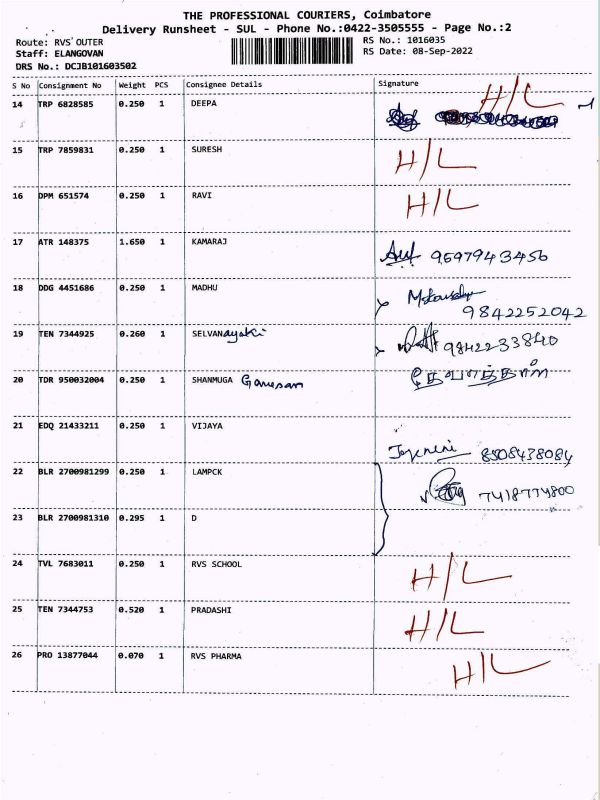 THE PROFESSIONAL COURIERS, Coimbatore
Delivery Runsheet - SUL - Phone No.:0422-3505555 - Page No.:2
Route: RVS OUTER
Staff: ELANGOVAN
DRS No.: DCJB101603502
RS No.: 1016035
RS Date: 08-Sep-2022
S No Consignment No Weight PCS Consignee Details Signature
14 TRP 6828585 0.250 1 DEEPA H/L
15 TRP 7859831 0.250 1 SURESH H/L
16 DPM 651574 0.250 1 RAVI H/L
17 ATR 148375 1.650 1 KAMARAJ 9697943456
18 DDG 4451686 0.250 1 MADHU 9842252042
19 TEN 7344925 0.260 1 SELVANayaki 9842233840
20 TDR 950032004 0.250 1 SHANMUGA Ganesan
21 EDQ 21433211 0.250 1 VIJAYA 8508438084
22 BLR 2700981299 0.250 1 LAMPCK 7418774800
23 BLR 2700981310 0.295 1 D
24 TVL 7683011 0.250 1 RVS SCHOOL H/L
25 TEN 7344753 0.520 1 PRADASHI H/L
26 PRO 13877044 0.070 1 RVS PHARMA H/L